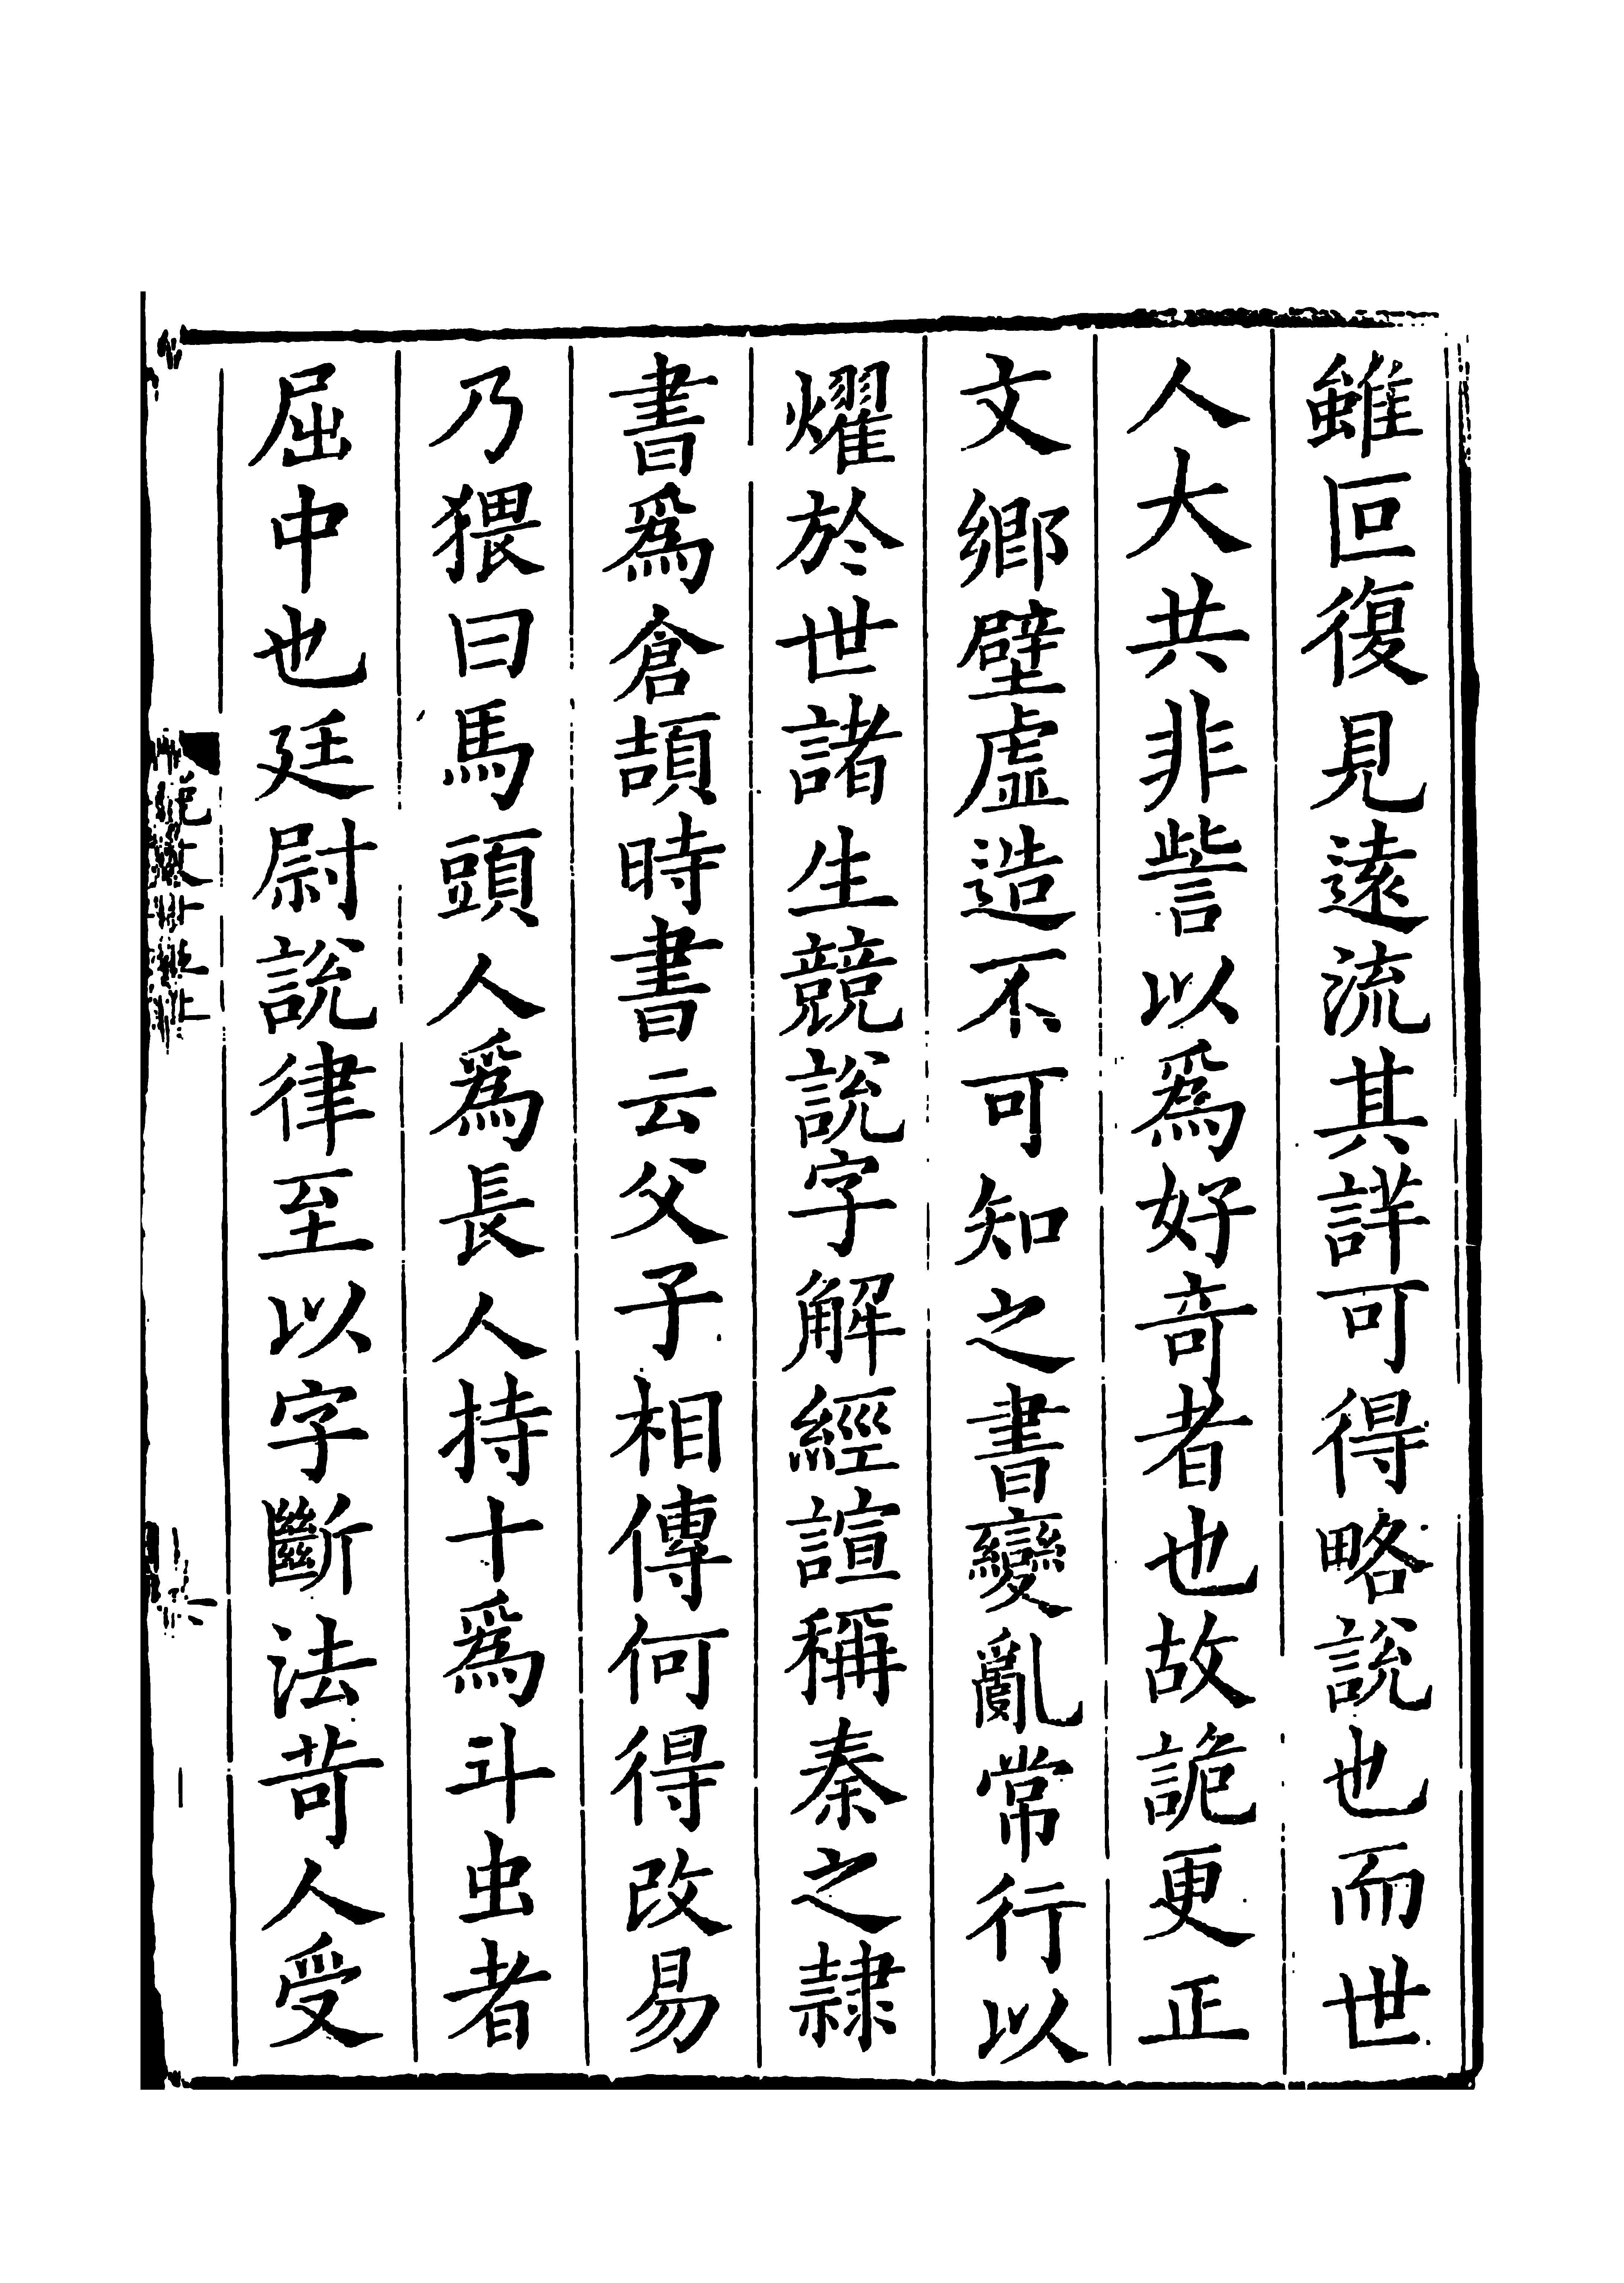 雖叵復見遠流其詳可得略說也而世
人大共非訾以爲好竒者也故詭更正
文鄉壁虛造不可知之書變亂常行以
燿於世諸生競說字解經諠稱秦之隷
書爲倉頡時書云父子相傳何得改易
乃猥曰馬頭人爲長人持十爲斗虫者
屈中也廷尉說律至以字斷法苛人受